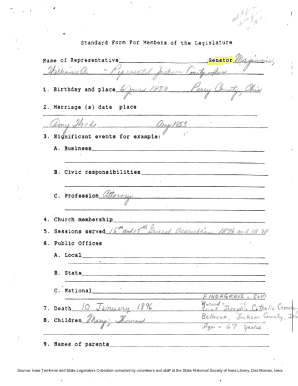 Standard Form For Members of the Legislature
Name of Representative Senator
William A. - Represented Jackson County, Iowa
1. Birthday and place 6 June 1828 Perry County, Ohio
2. Marriage (s) date place
Aug 1853
3. Significant events for example:
A. Business
B. Civic responsibilities
C. Profession Attorney
4. Church membership
5. Sessions served 16th and 17th General Assemblies 1876 and 1878
6. Public Offices
A. Local
B. State
C. National
FINDAGRAVE.COM
7. Death 10 January 1896 Saint Joseph's Catholic Cemetery
Bellevue, Jackson County, Iowa
8. Children Mary; Thomas Age - 67 years.
9. Names of parents
Source: Iowa Territorial and State Legislators Collection compiled by volunteers and staff at the State Historical Society of Iowa Library, Des Moines, Iowa.